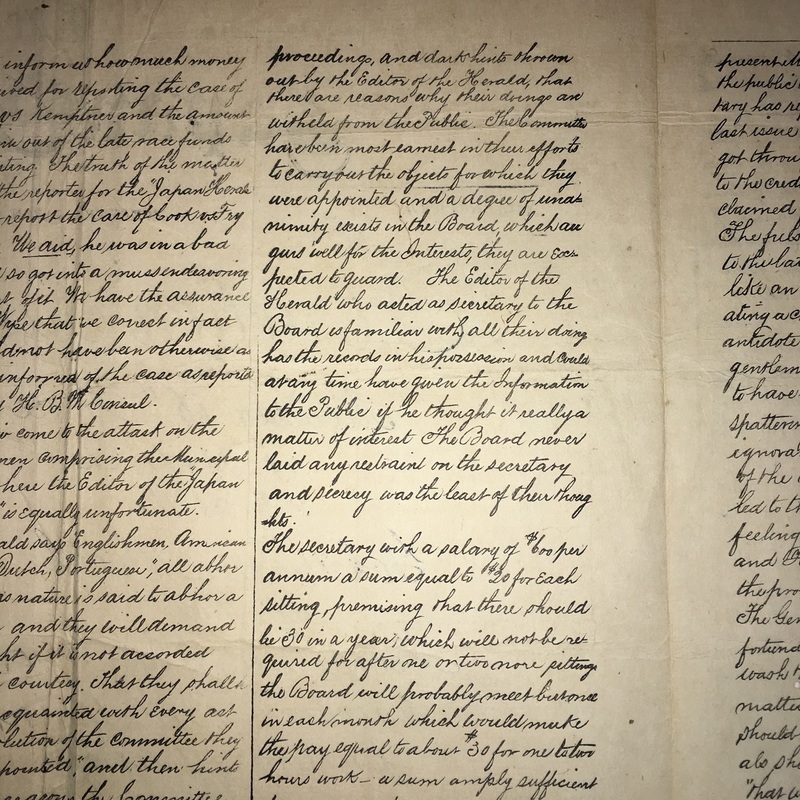 inform us how much money
ived for reporting the case of
vs Kemptner and the amount
out of the late race funds
ting. The truth of the matter
the reporter for the "Japan Herald
report the case of Cook vs Fry
We aid, he was in a bad
so got into a muss endeavoring
of it We have the assurance
that we correct in fact
d not have been otherwise as
informed of the case as reported
H. B. M Consul.
come to the attack on the
men comprising the Municipal
here the Editor of the "Japan
" is equally unfortunate.
ald says "Englishmen, American
Dutch, Portuguese," all abhor
as nature is said to abhor a
and they will demand
ht if it is not accorded
courtesy. That they shall
acquainted with every act
olution of the committee they
pointed", and then hints
the Committee
proceedings, and dark hints thrown
out by the Editor of the Herald, that
there are reasons why their doings are
witheld from the Public. The Committee
have been most earnest in their efforts
to "carry out the objects for which they
were appointed and a degree of una=
nimity exists in the Board, which au
gurs well for the Interests, they are Exs=
pected to guard. The Editor of the
Herald" who acted as secretary to the
Board is familiar with all their doing
has the records in his possession and Could
at any time have given the Information
to the Public if he thought it really a
matter of interest The Board never
laid any restraint on the secretary
and secrecy was the least of their thoug
hts.
The secretary with a salary of $600 per
annum a sum equal to $20 for Each
sitting, premising that there should
be 30 in a year, which will not be re=
quired for after one or two more sittings
the Board will probably meet but once
in each month which would make
the pay equal to about $30 for one to two
hours work — a sum amply sufficient
present
the public
tary has re
last issue
got throu
to the cred
claimed
The pub
to the ba
like an
ating a c
antidote
gentlem
to have
spatterin
ignora
of the
led to t
feeling
and
the pro
The Gen
fortun
wash
matte
should
als sh
"that w